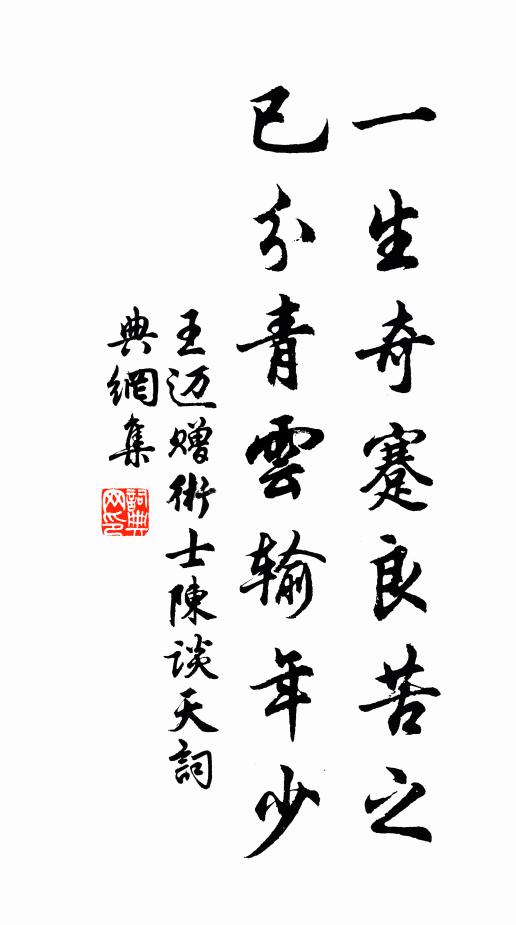 一生奇蹇良苦之
已分青雲輸年少
王迈贈術士陳谈天詞
典網集
詞典網印